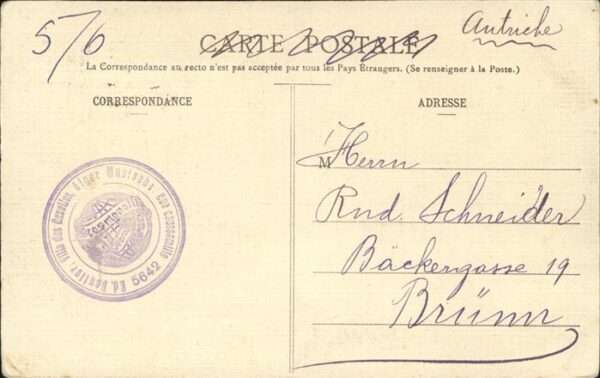 5/6
CARTE POSTALE
Autriche
La Correspondance au recto n'est pas acceptée par tous les Pays Étrangers. (Se renseigner à la Poste.)
CORRESPONDANCE
ADRESSE
M
Herrn
Rud. Schneider
Bäckergasse 19
Brünn
Villa des Alger Mustapha 5642